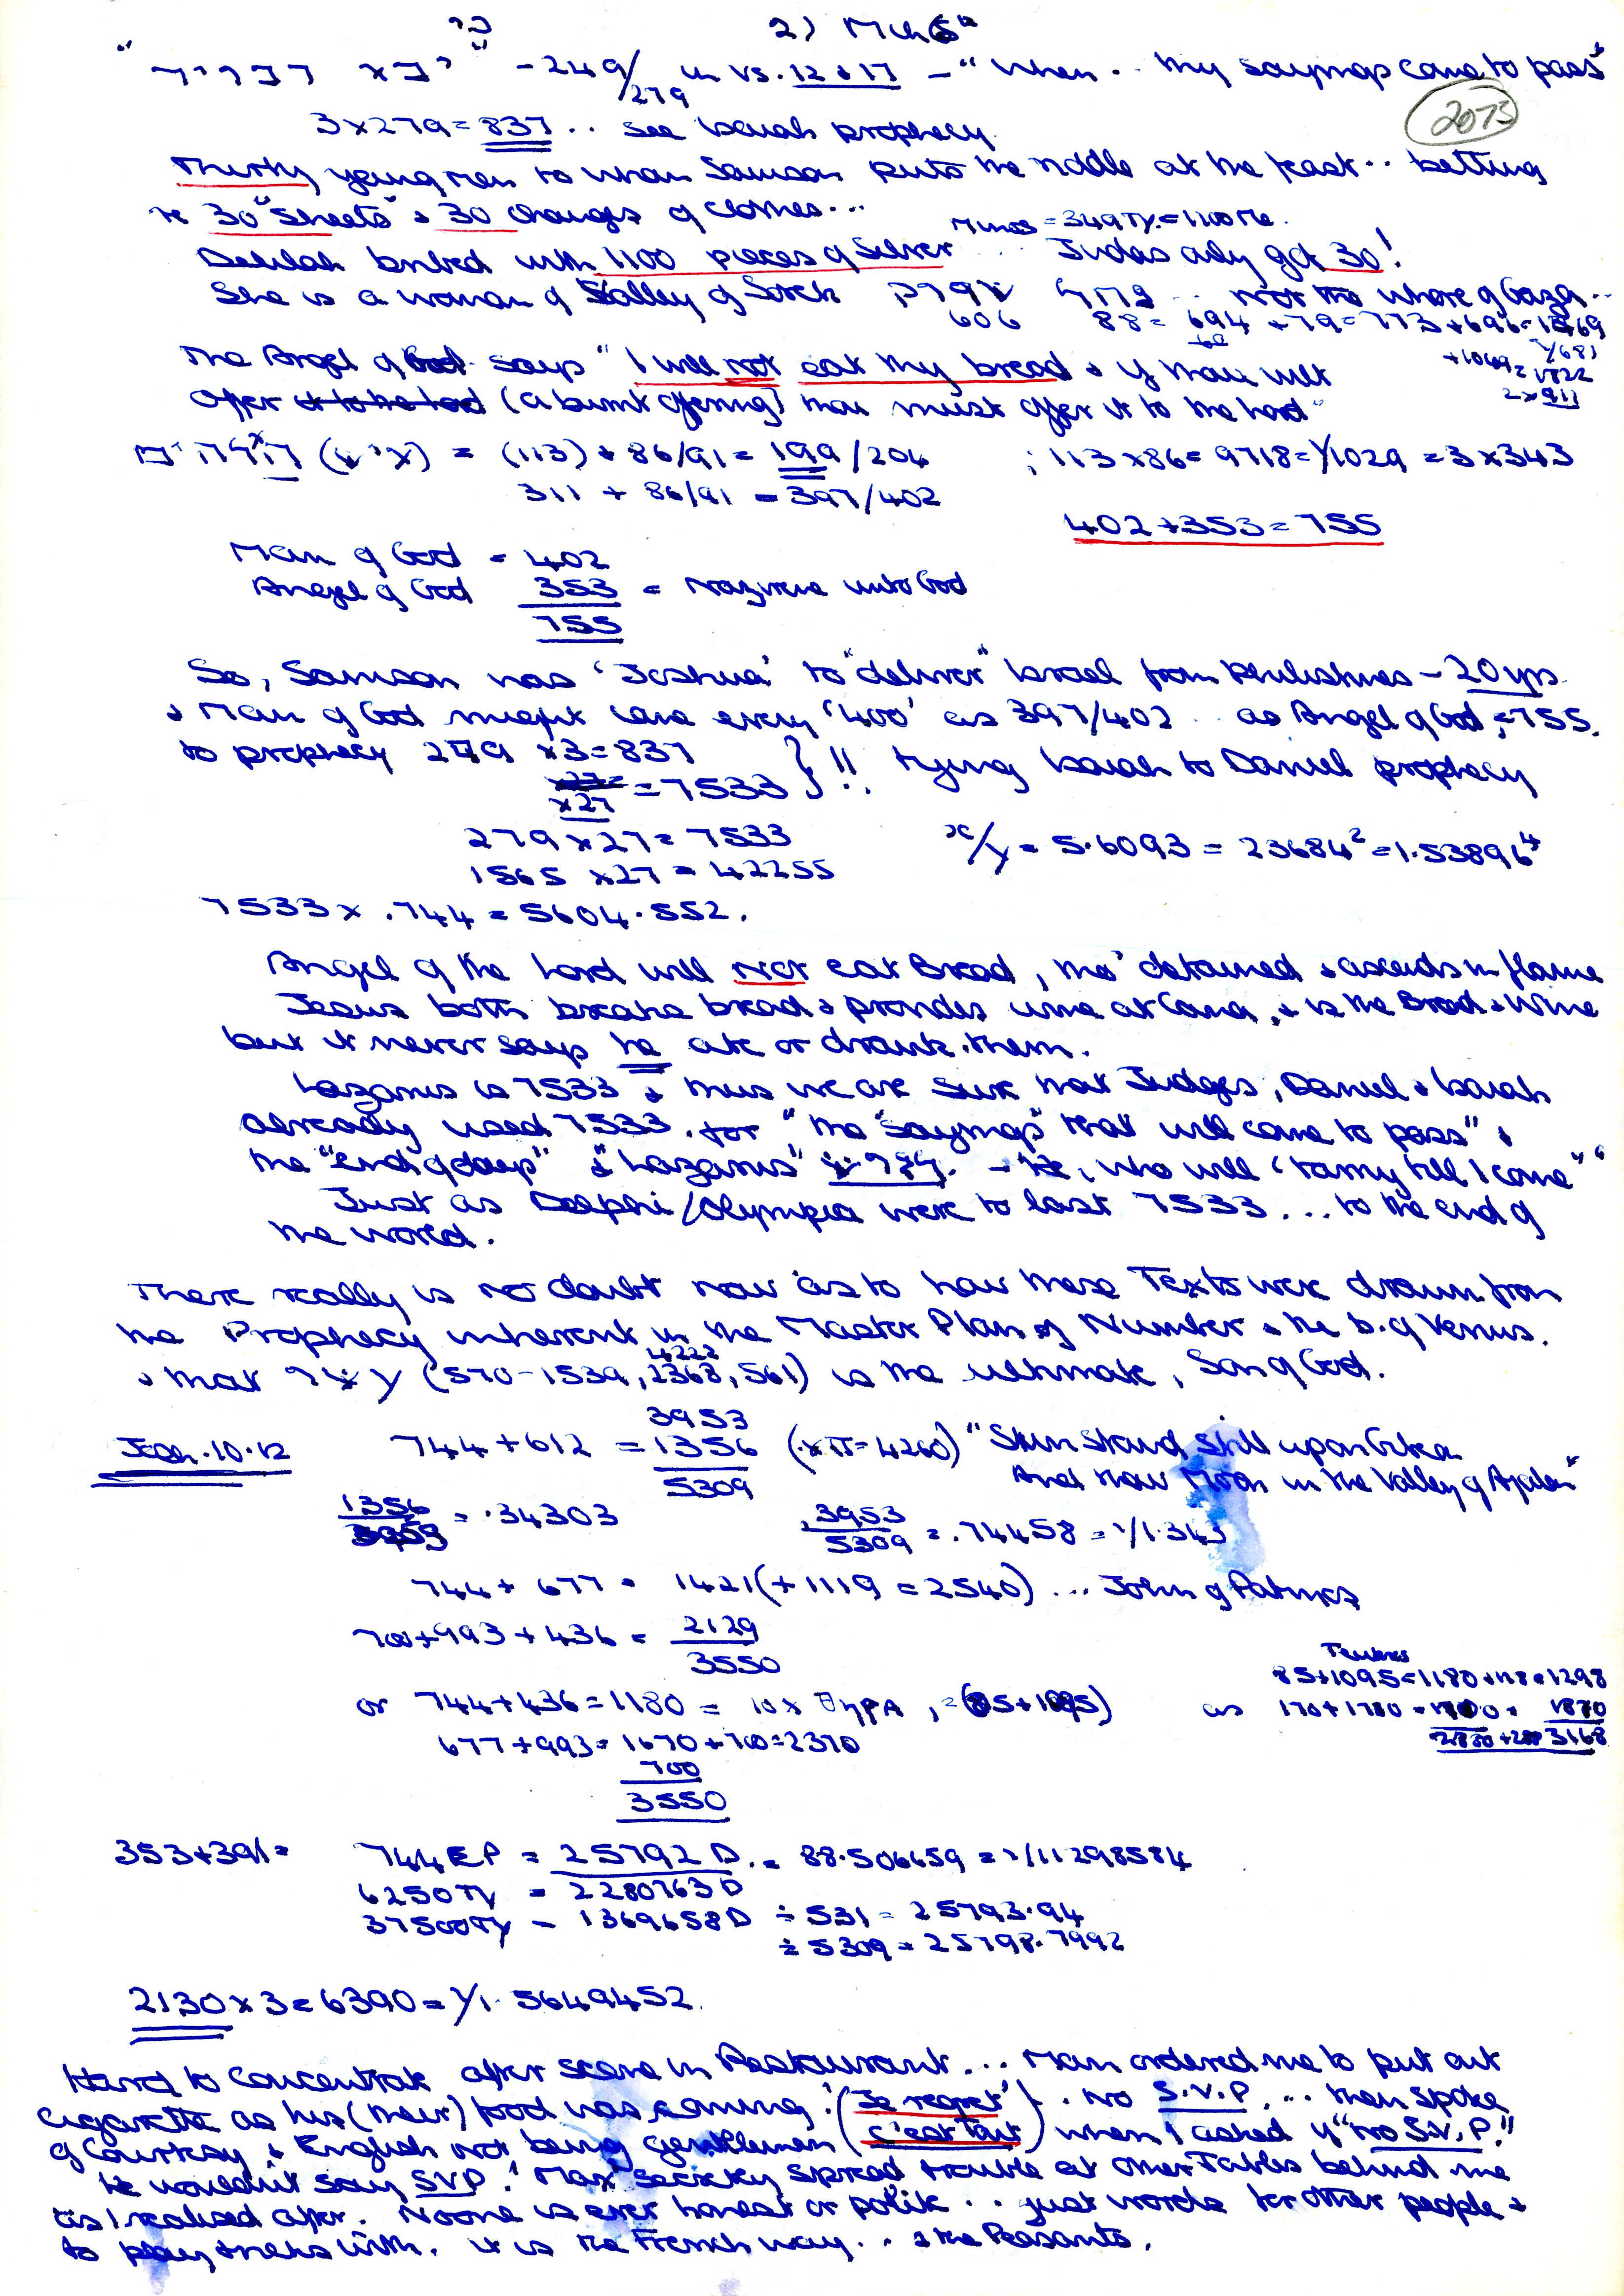 2)
- 249/279 in vs. 12 & 17 - "When .. thy sayings come to pass"
2073
3 x 279 = 837 .. see Isaiah prophecy.
Thirty young men to whom Samson puts the riddle at the feast .. betting
30 "Sheets" & 30 changes of clothes ...
Minos = 349 Ty. = 1100 Me.
Delilah bribed with 1100 pieces of Silver Judas only got 30!
She is a woman of Valley of Sorek קרוש נחל .. Not the whore of Gaza ..
606 88 = 694 + 79 = 773 + 696 = 1469
The Angel of God says "I will not eat thy bread & if thou wilt
offer (a burnt offering) thou must offer it to the Lord"
= (113) + 86/91 = 199/204 ; 113 x 86 = 9718 = 1/1029 = 3 x 343
311 + 86/91 = 397/402
402 + 353 = 755
Man of God = 402
Angel of God 353 = Nazirite unto God
755
So, Samson was 'Joshua' to "deliver" Israel from Philistines - 20 yrs.
& Man of God might come every '400' as 397/402 .. as Angel of God = 755.
to prophecy 279 x 3 = 837 } !! tying Isaiah to Daniel prophecy
x 27 = 7533
279 x 27 = 7533 x/y = 5.6093 = 23684² = 1.53896⁴
1565 x 27 = 42255
7533 x .744 = 5604.552.
Angel of the Lord will not eat Bread, tho' detained & ascends in flame
Jesus both breaks bread & provides wine at Cana, & is the Bread & Wine
but it never says he ate or drank them.
Lazarus is 7533 & thus we are sure that Judges, Daniel & Isaiah
already used 7533. for "the "sayings" that will come to pass" &
the "end of days" & "Lazarus" - He, who will 'tarry till I come"
Just as Delphi/Olympia were to last 7533 ... to the end of
the world.
There really is no doubt now as to how these Texts were drawn from
the Prophecy inherent in the Master Plan of Number & the b. of Venus.
4222
& that (570 - 1539, 2368, 561) is the ultimate, Son of God.
3953
Josh. 10.12 744 + 612 = 1356 (x π = 4260) "Sun stand still upon Gibea
5309 And thou Moon in the Valley of Ajalon"
1356/3953 = .34303 3953/5309 = .74458 = 1/1.343
744 + 677 = 1421 (+ 1119 = 2540) ... John of Patmos
700 + 993 + 436 = 2129
3550
or 744 + 436 = 1180 = 10 x θηρΑ, = (85 + 1095)
85 + 1095 = 1180 + 118 = 1298
677 + 993 = 1670 + 700 = 2370
700
3550
353 + 391 = 744 EP = 25792 D. = 88.506659 = 1/11298584
6250 Ty = 2280763 D
37500 Ty - 1369658 D ÷ 531 = 25793.94
÷ 5309 = 25798.7992
2130 x 3 = 6390 = 1/1.5649452.
Hard to concentrate after scene in Restaurant ... Man ordered me to put out
cigarette as his (their) food was coming. ('Je regret') . no S.V.P. ... then spoke
of Courtesy & English not being gentlemen (c'est tout) when I asked if "no S.V.P."
He wouldn't say SVP! Max society spread trouble at other Tables behind me
as I realised after. Noone is ever honest or polite .. just words for other people &
to play tricks with. it is the French way .. & the Peasants.